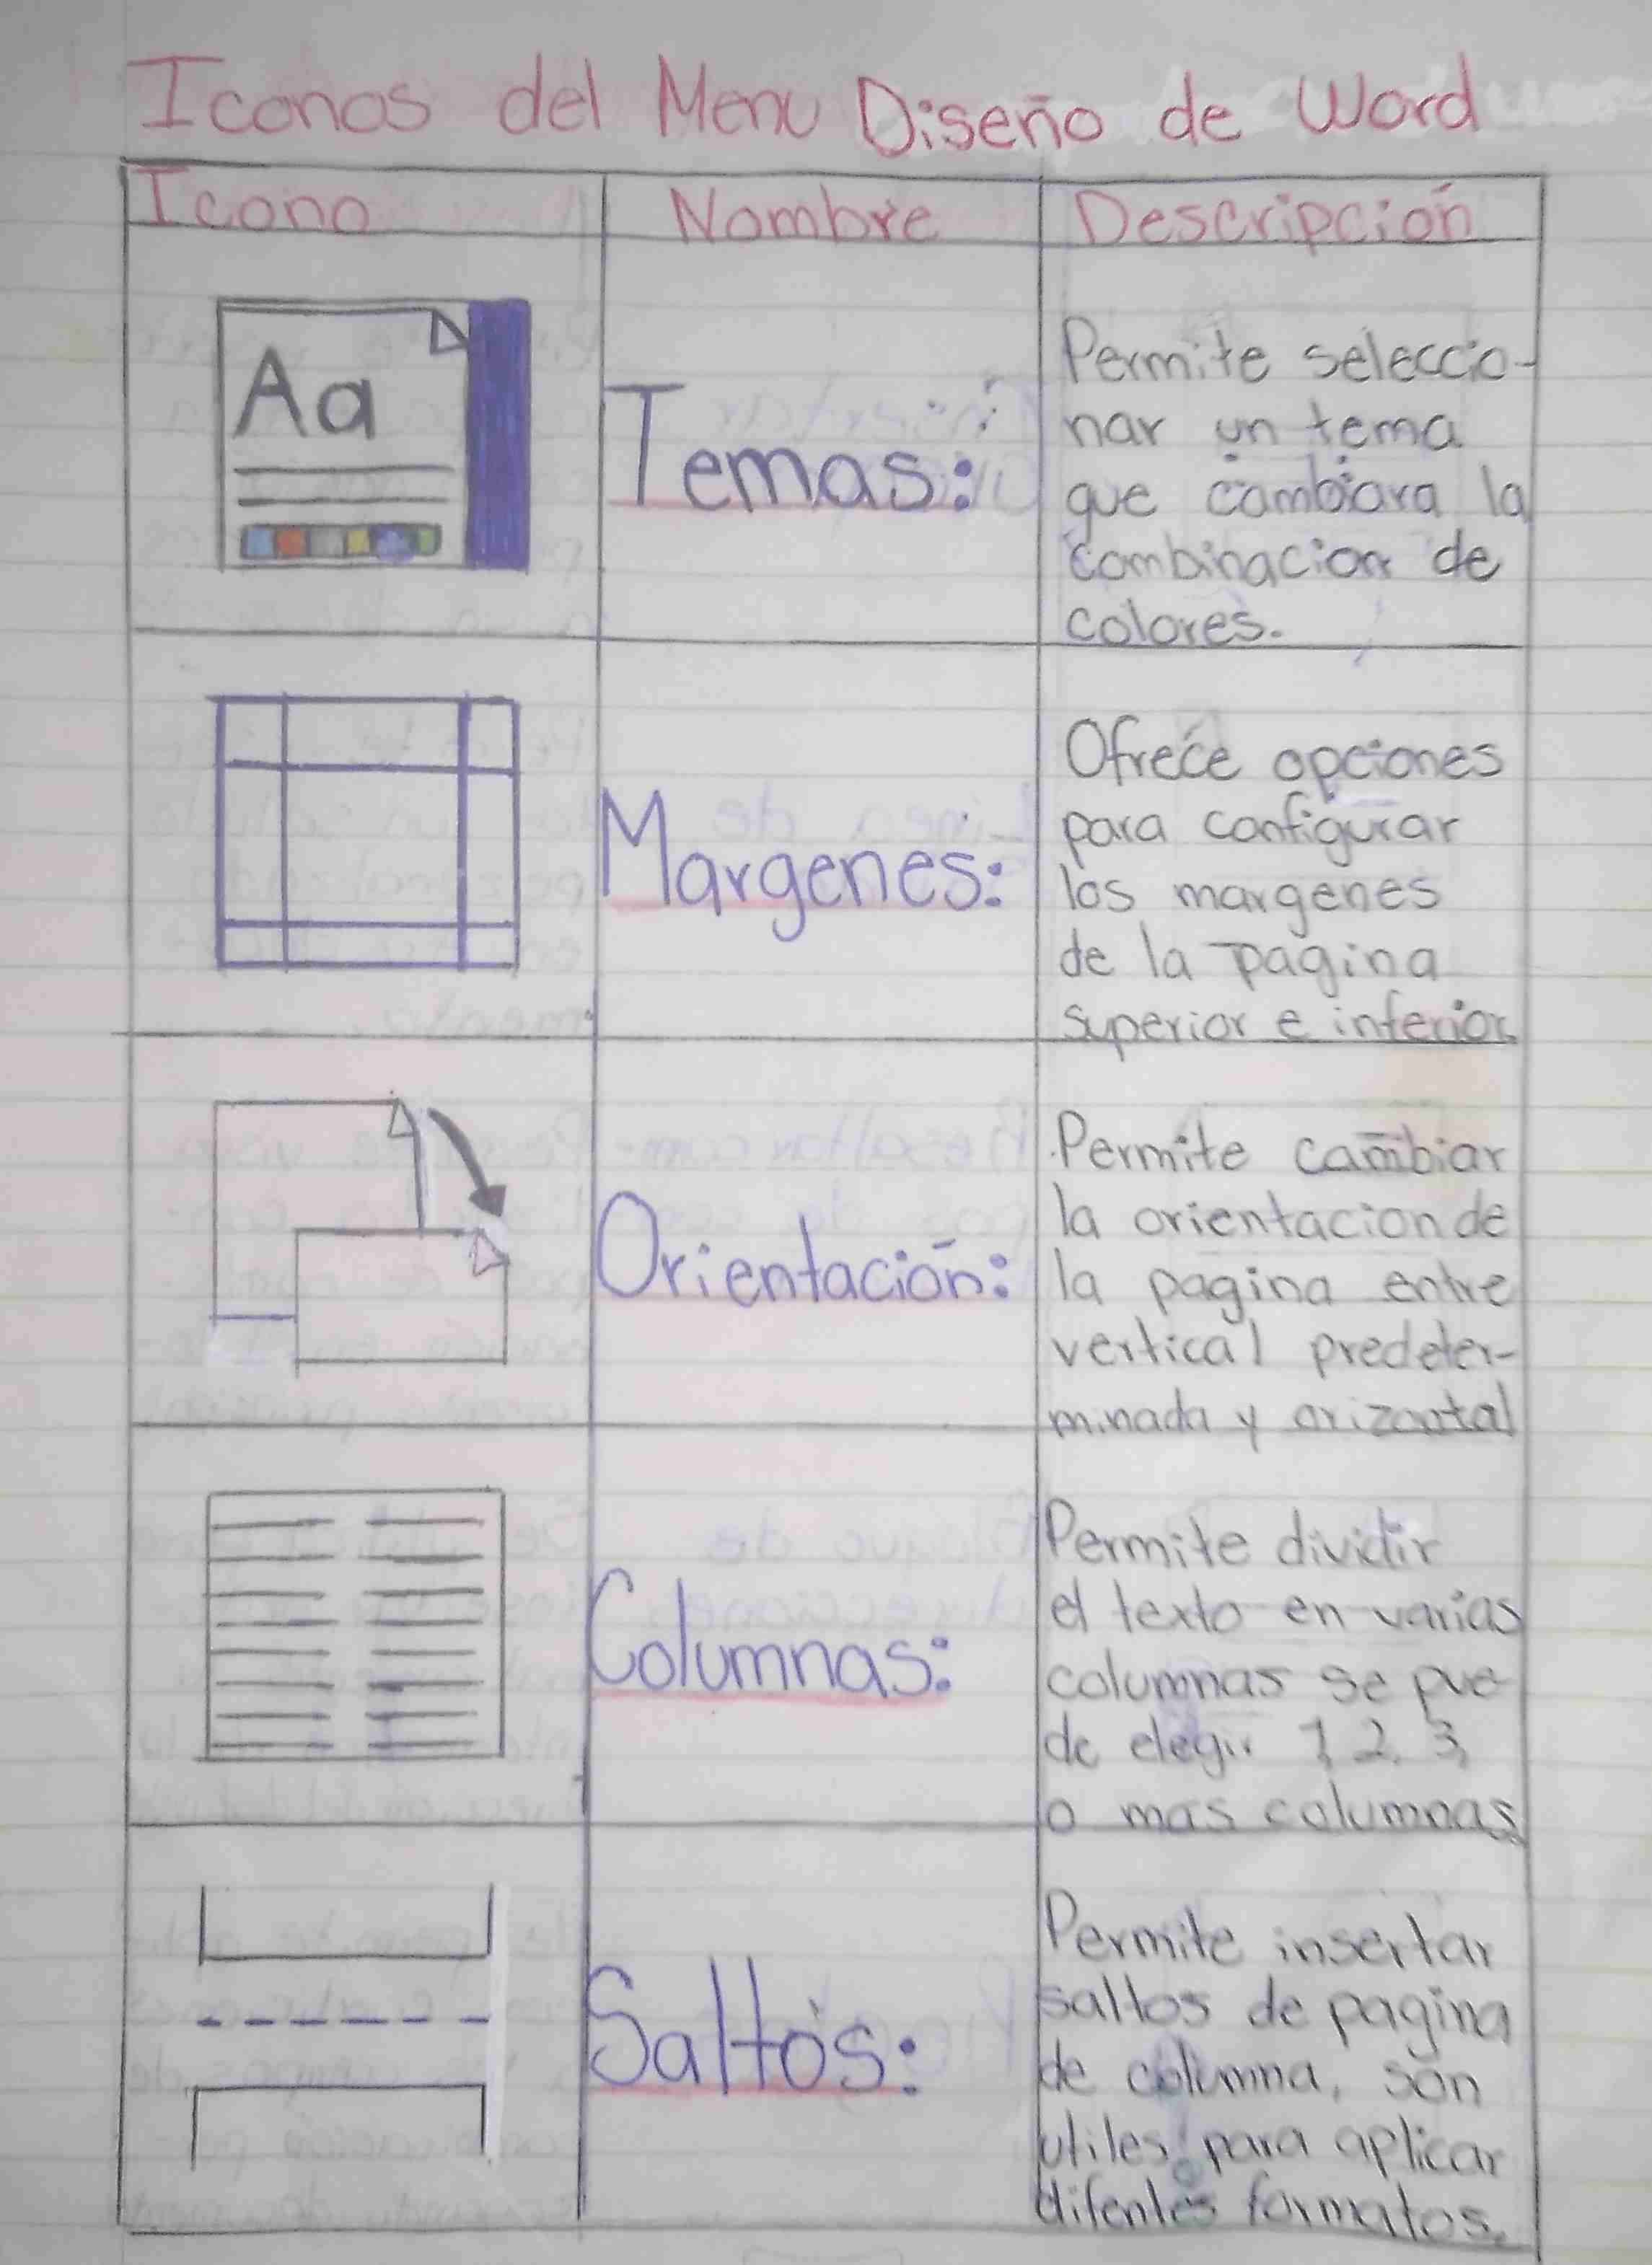 Iconos del Menu Diseño de Word
Icono Nombre Descripción
Aa
Temas:
Permite seleccio-
nar un tema
que cambiara la
combinacion de
colores.
Margenes:
Ofrece opciones
para configurar
los margenes
de la pagina
superior e inferior
Orientación:
Permite cambiar
la orientacion de
la pagina entre
vertical predeter-
minada y orizontal
Columnas:
Permite dividir
el texto en varias
columnas se pue-
de elegir 1, 2, 3,
o mas columnas
Saltos:
Permite insertar
saltos de pagina
de columna, son
utiles para aplicar
difentes formatos.